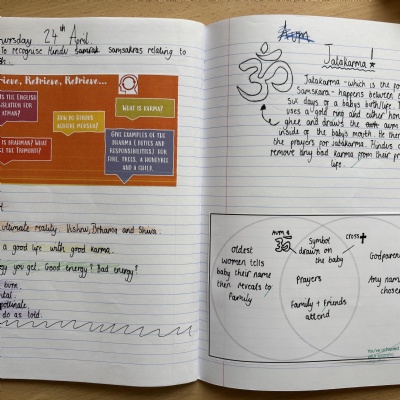 ursday 24th April.
To recognise Hindu samskaras relating to
ieve, Retrieve, Retrieve...
IS THE ENGLISH
SLATION FOR
ATMAN?
HOW DO HINDUS
ACHIEVE MOKSHA?
WHAT IS KARMA?
IS BRAHMAN? WHAT
THE TRIMURTI?
GIVE EXAMPLES OF THE
DHARMA (DUTIES AND
RESPONSIBILITIES) FOR
FIRE, TREES, A HONEYBEE
AND A CHILD.
ultimate reality. Vishnu, Brhama and Shiva.
a good life with good karma.
you get. Good energy? Bad energy?
burn.
do as told.
Aum
Jatakarma!
ॐ
Jatakarma - which is the
Samskara - happens between
six days of a baby's birth/life.
uses a gold ring and either hon
ghee and draws the aum
inside of the baby's mouth. He then
the prayers for Jatakarma. Hindus
remove any bad karma from their pr
life.
Oldest
women tells
baby their name
then reveals to
family
Aum
ॐ
symbol
drawn on
the baby
cross
Prayers
Family + friends
attend
Godparent
Any name
chosen